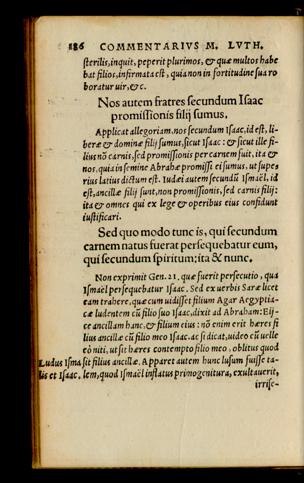 186 COMMENTARIVS M. LVTH.
sterilis, inquit, peperit plurimos, & quæ multos habe
bat filios, infirmata est, quia non in fortitudine sua ro
boratur uir, &c.
Nos autem fratres secundum Isaac
promissionis filij sumus.
Applicat allegoriam. nos secundum Isaac, id est, li-
beræ & dominæ filij sumus, sicut Isaac: & sicut ille fi-
lius nõ carnis, sed promissionis per carnem fuit, ita &
nos, quia in semine Abrahæ promissi ei sumus, ut supe-
rius latius dictum est. Iudæi autem secundũ Ismaël, id
est, ancillæ filij sunt, non promissionis, sed carnis filij:
ita & omnes qui ex lege & operibus eius confidunt
iustificari.
Sed quo modo tunc is, qui secundum
carnem natus fuerat persequebatur eum,
qui secundum spiritum; ita & nunc.
Non exprimit Gen. 21. quæ fuerit persecutio, qua
Ismaël persequebatur Isaac. Sed ex uerbis Saræ licet
eam trahere, quæ cum uidisset filium Agar Aegyptia-
cæ ludentem cũ filio suo Isaac, dixit ad Abraham: Eij-
ce ancillam hanc, & filium eius: nõ enim erit hæres fi
lius ancillæ cũ filio meo Isaac. ac si dicat, uideo cũ uelle
eò niti, ut sit hæres contempto filio meo, oblitus quod
Ludus Isma sit filius ancillæ. Apparet autem hunc lusum fuisse ta-
lis et Isaac. lem, quod Ismaël inflatus primogenitura, exultauerit,
irrise-